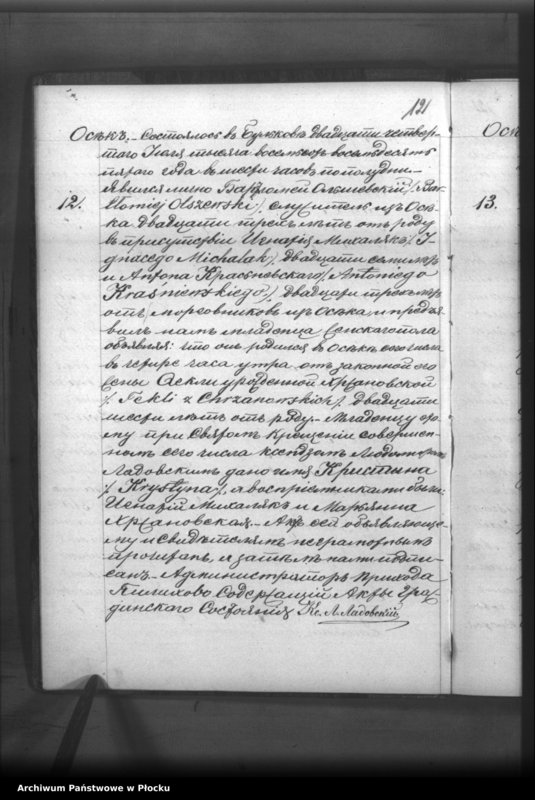 121
Осѣкъ. Состоялось въ двадцати четвер-
12.
таго Іюля тысяча восемьсотъ восемьдесятъ
пятаго года въ шесть часовъ пополудни.
Явился лично Варѳоломей Ольшевскій /: Bar-
tłomiej Olszewski :/, служитель изъ Осѣ-
ка двадцати трехъ лѣтъ отъ роду
въ присутствіи Игнатія Михаляка /: I-
gnacego Michalak :/ двадцати семи лѣтъ
и Антона Красневскаго /: Antoniego
Kraśniewskiego :/ двадцати трехъ лѣтъ
отъ изъ Осѣка и предъя-
вилъ намъ младенца женскаго пола
объявляя: что онъ родился въ Осѣкѣ сего числа
въ четыре часа утра отъ законной его
жены Ѳеклы урожденной Хржановской
/: Tekli z Chrzanowskich :/ двадцати
шести лѣтъ отъ роду. Младенцу се-
му при Святомъ Крещеніи совершен-
номъ сего числа ксендзомъ
Ладовскимъ дано имя Кристына
/: Krystyna :/, а воспріемниками были:
Игнатій Михалякъ и Марьянна
Хржановская. Актъ сей объявляюще-
му и свидѣтелямъ неграмотнымъ
прочитанъ, и затѣмъ нами подпи-
санъ. Администраторъ Прихода
Содержащій Акты Граж-
данскаго Состоянія Кс. Л. Ладовскій
Осѣ
13.
Archiwum Państwowe w Płocku